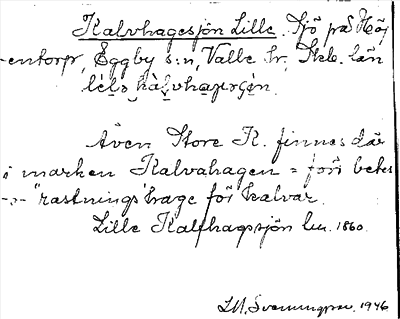 Kalvhagesjön Lille. Sjö på Höj
-entorp, Eggby s:n, Valle hr, Skb. län
Även Store K. finnes där
i marken Kalvahagen = förr betes
-o- "rastnings"hage för kalvar.
Lille Kalfhagsjön lm. 1860.
L.M. Svenungsson. 1946